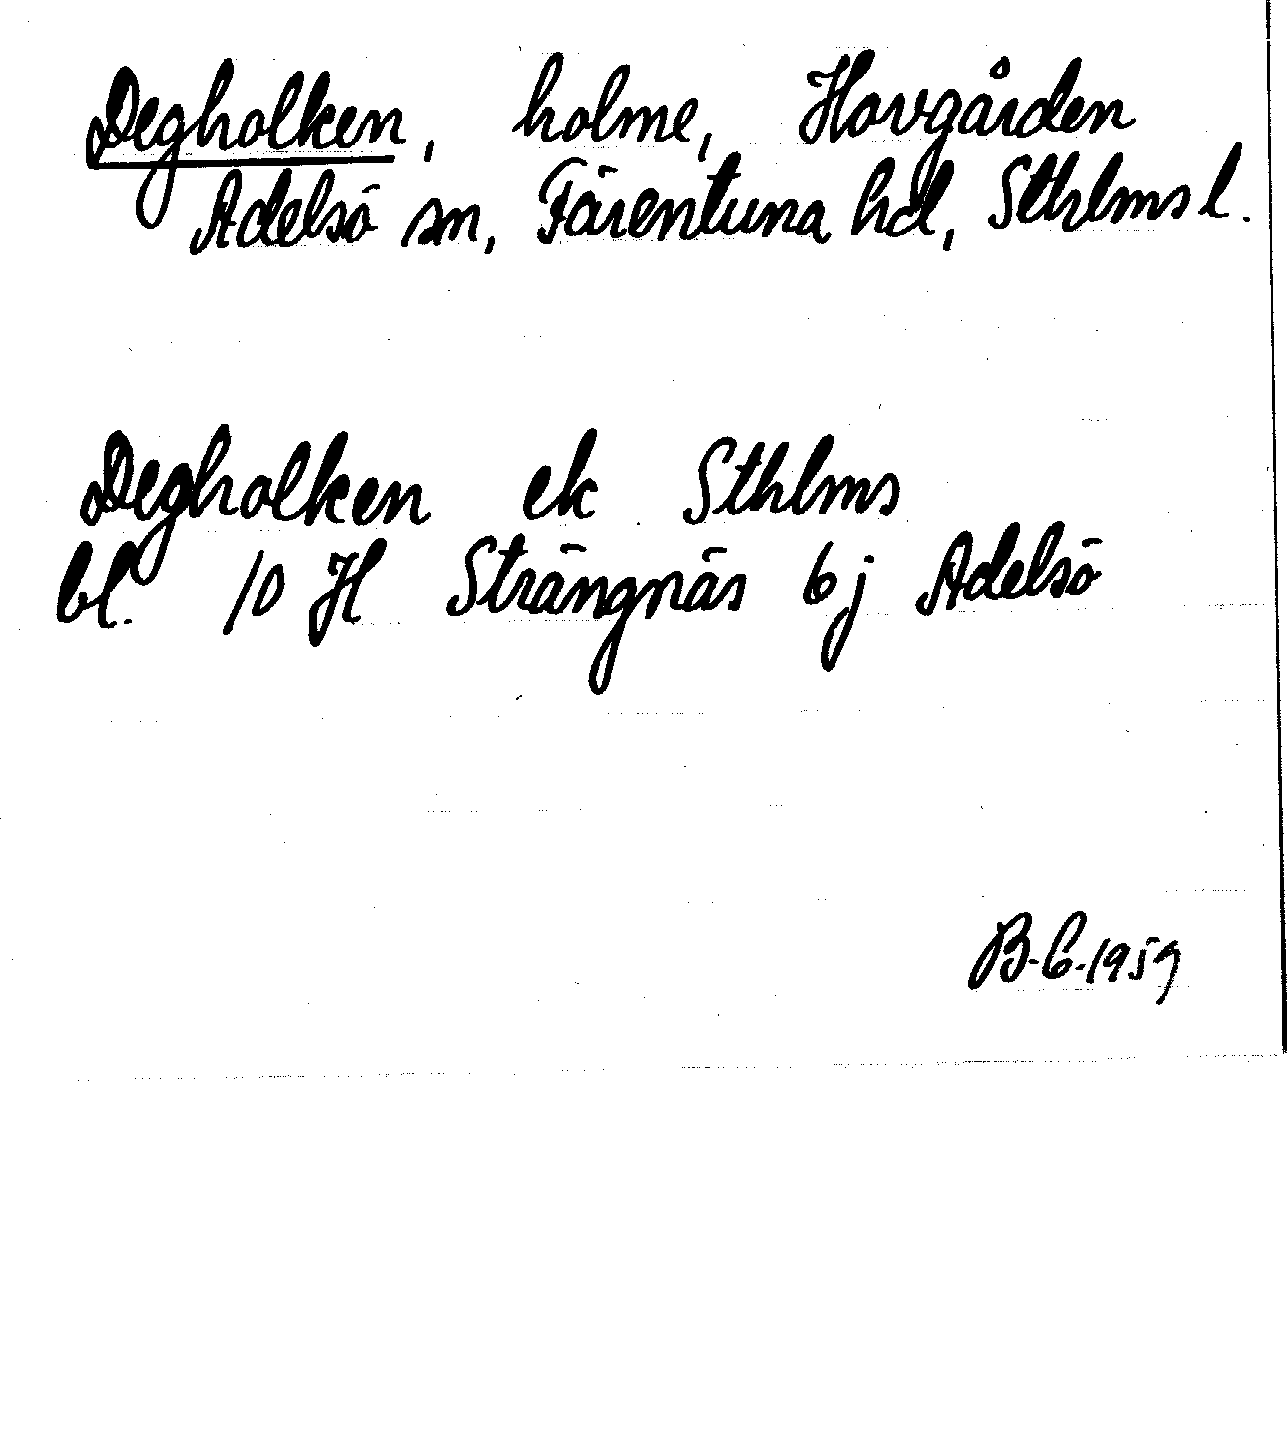 Degholken, holme, Hovgården
Adelsö sn, Färentuna hd, Sthlms l.
Degholken ek Sthlms
bl. 10 H Strängnäs 6j Adelsö
B-C-1959